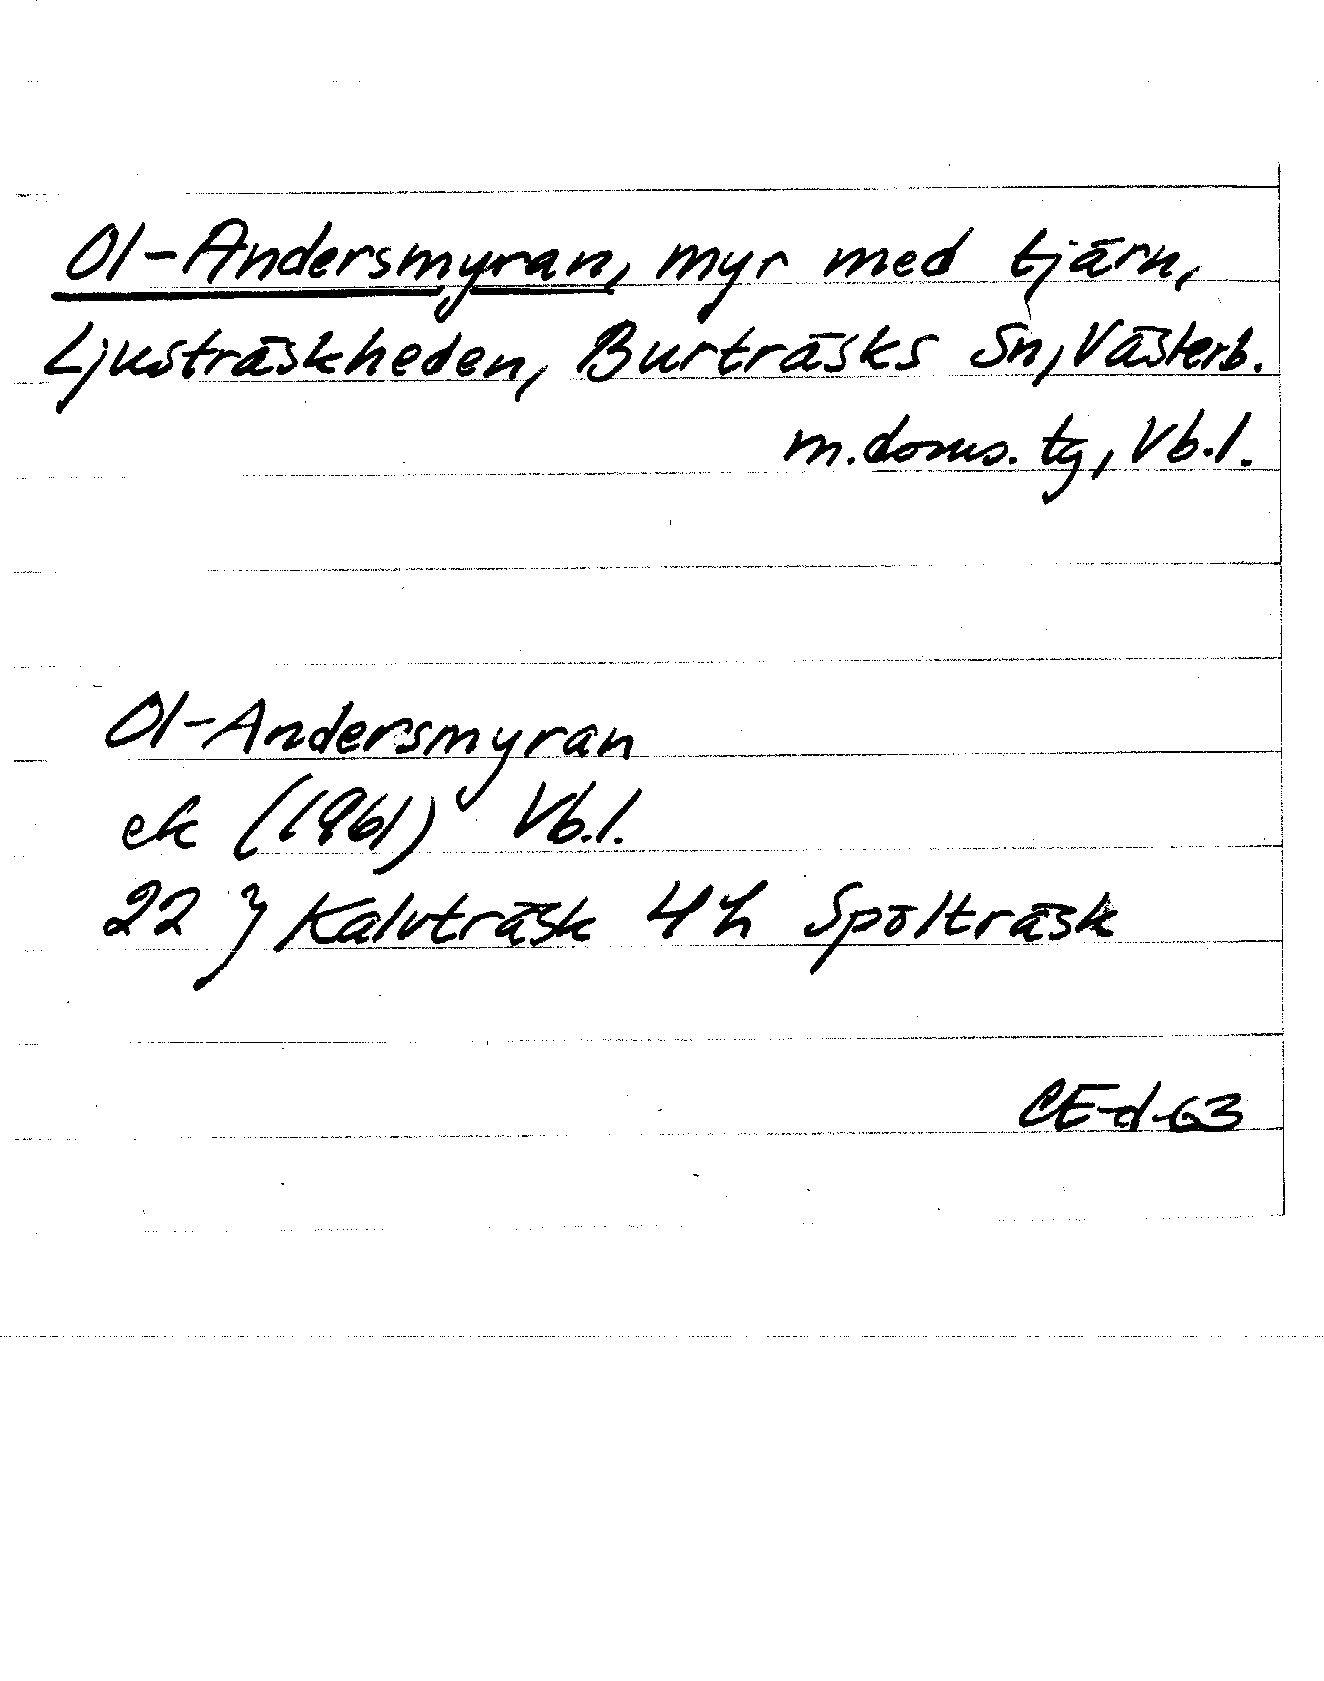 Ol-Andersmyran, myr med tjärn,
Ljusträskheden, Burträsks Sn, Västerb.
m.doms. tg, Vb.l.
Ol-Andersmyran
ek (1961) Vb.l.
22 J Kalvträsk 4h Spölträsk
CE-d-63